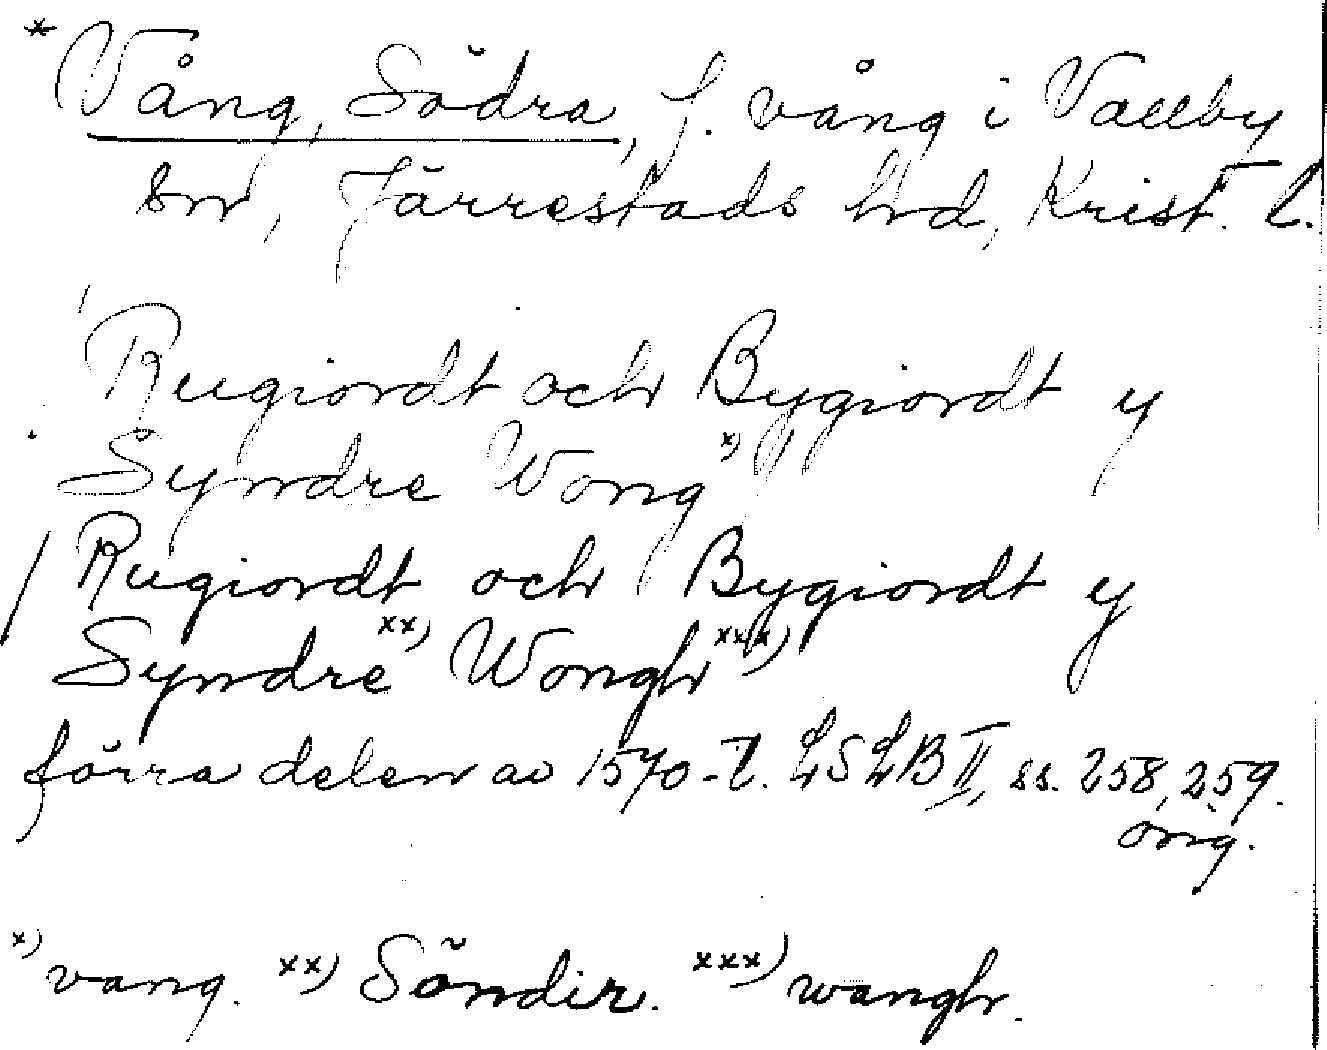 *Vång, Södra, f. vång i Vallby
sn, Järrestads hd, Krist. l.
Rugiordt och Bygiordt y
Syndre Wong x)
Rugiordt och Bygiordt y
Syndre xx) Wongh xxx)
förra delen av 1570-t. LSLB II, ss. 258, 259.
orig.
x) vang. xx) Söndir. xxx) wangh.